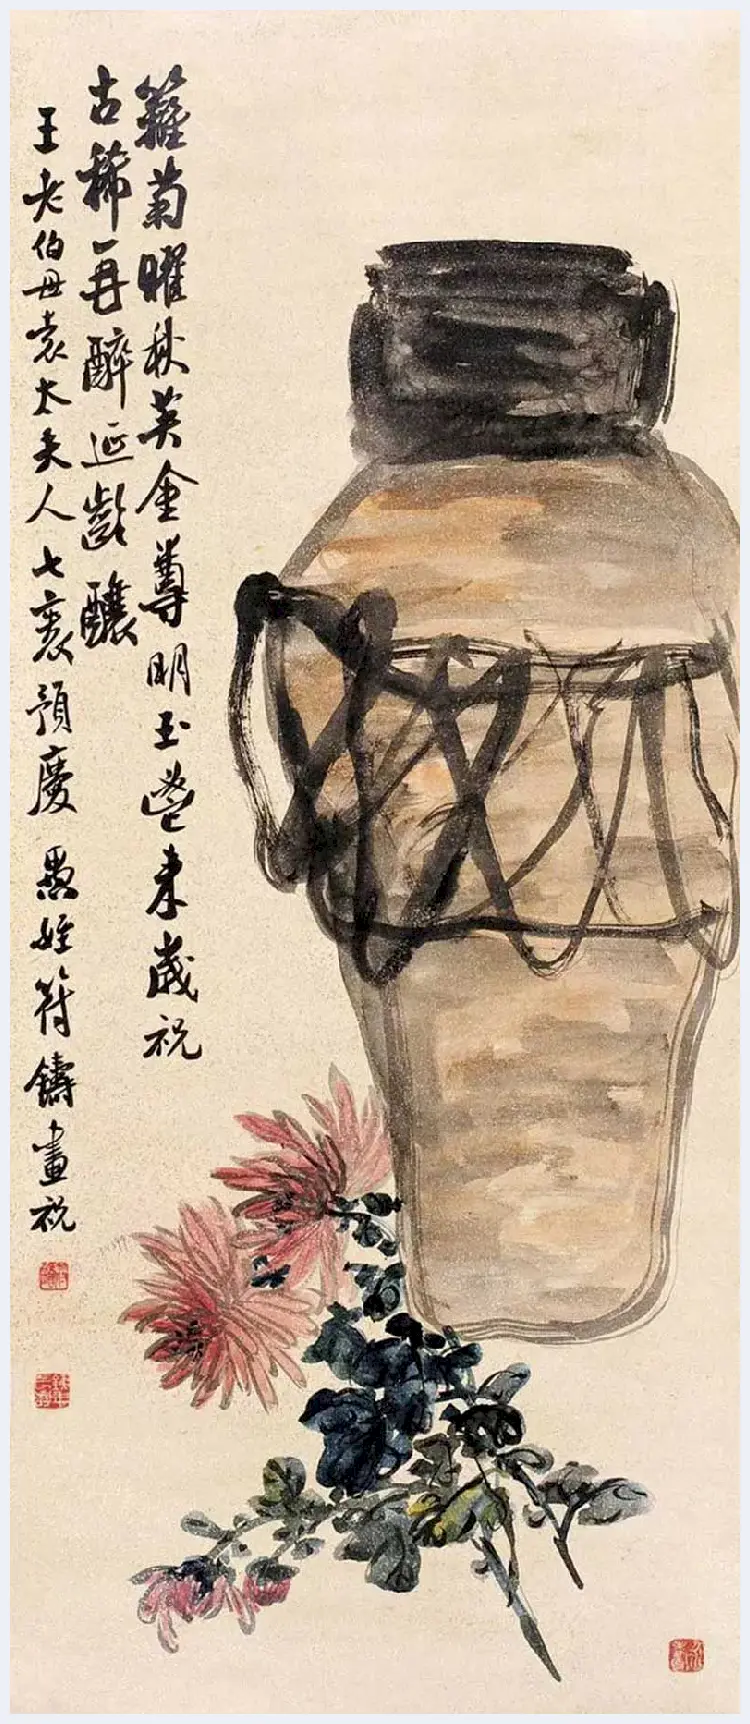 籬菊曜秋英金尊明玉斝来歲祝
古稀再醉延齡釀
王老伯母袁太夫人七袠預慶 愚姪符鑄畫祝